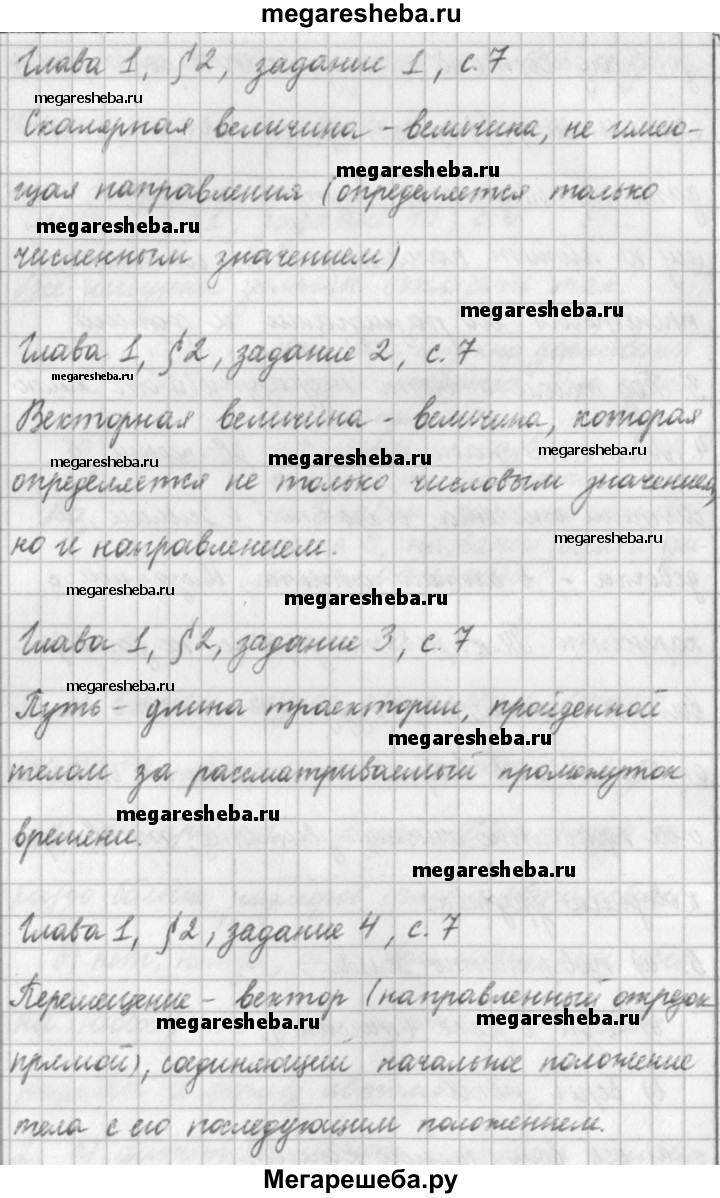 megaresheba.ru
Глава 1, § 2, задание 1, с. 7
megaresheba.ru
Скалярная величина - величина, не имею-
megaresheba.ru
щая направления (определяется только
megaresheba.ru
численным значением)
megaresheba.ru
Глава 1, § 2, задание 2, с. 7
megaresheba.ru
Векторная величина - величина, которая
megaresheba.ru
megaresheba.ru
megaresheba.ru
определяется не только числовым значением,
но и направлением.
megaresheba.ru
megaresheba.ru
megaresheba.ru
Глава 1, § 2, задание 3, с. 7
megaresheba.ru
Путь - длина траектории, пройденной
megaresheba.ru
телом за рассматриваемый промежуток
megaresheba.ru
времени.
megaresheba.ru
Глава 1, § 2, задание 4, с. 7
Перемещение - вектор (направленный отрезок
megaresheba.ru
megaresheba.ru
прямой), соединяющий начальное положение
тела с его последующим положением.
Мегарешеба.ру